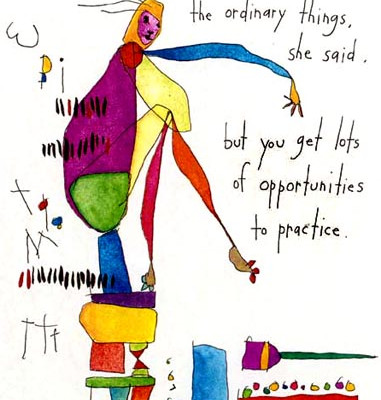 the ordinary things,
she said.
but you get lots
of opportunities
to practice.